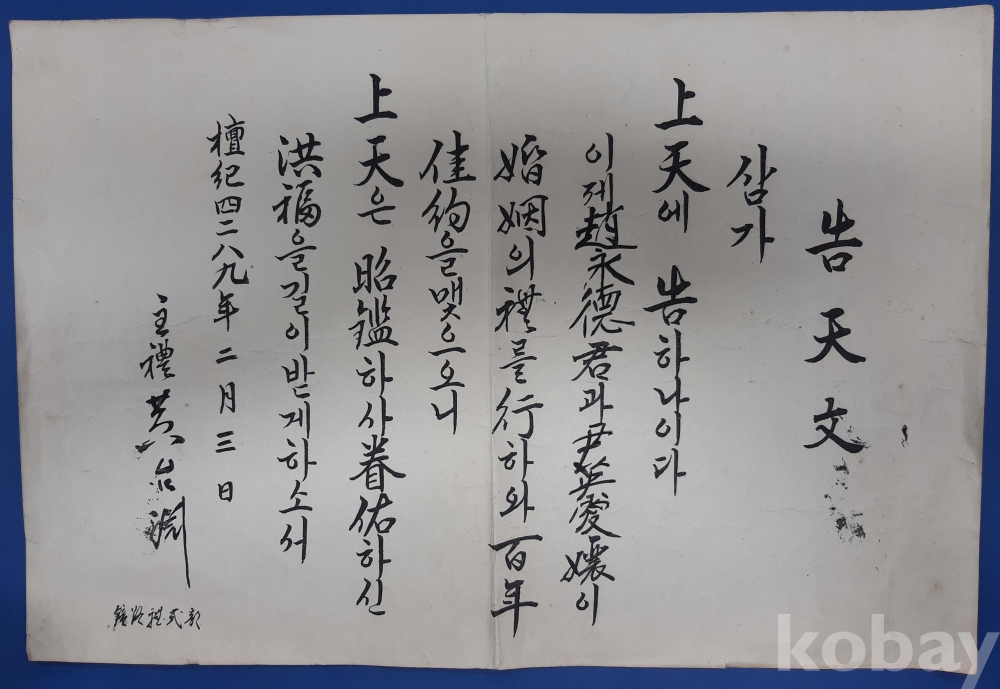 告天文
삼가
上天에 告하나이다
이제趙永德君과尹英愛孃이
婚姻의禮를行하와百年
佳約을맺으오니
上天은 昭鑑하사眷佑하신
洪福을길이받게하소서
檀紀四二八九年二月三日
主禮 黃
禮式部
kobay